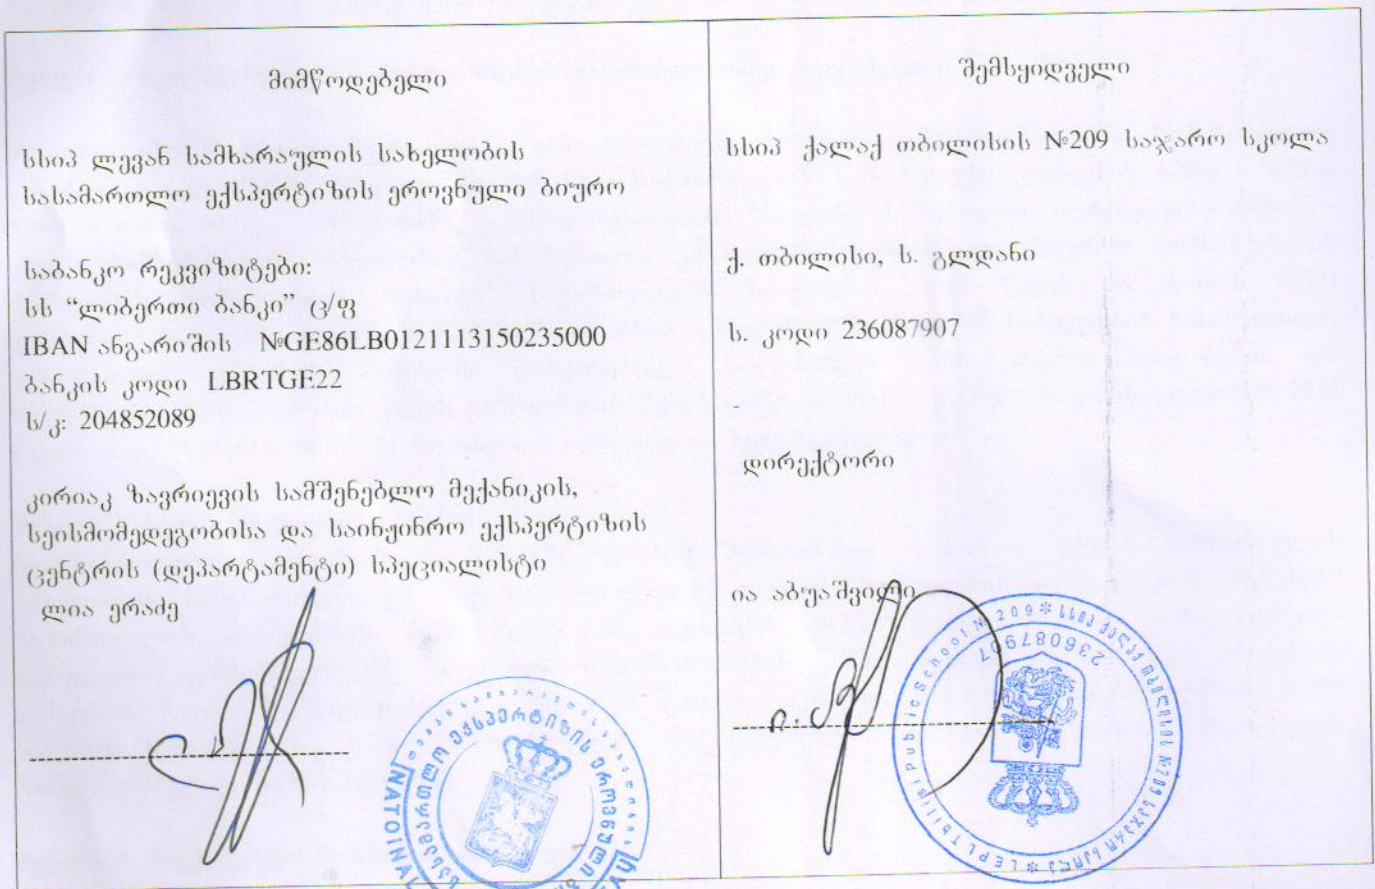 მიმწოდებელი
სსიპ ლევან სამხარაულის სახელობის
სასამართლო ექსპერტიზის ეროვნული ბიურო
საბანკო რეკვიზიტები:
სს “ლიბერთი ბანკი” ც/ფ
IBAN ანგარიშის №GE86LB0121113150235000
ბანკის კოდი LBRTGE22
ს/კ: 204852089
კირიაკ ზავრიევის სამშენებლო მექანიკის,
სეისმომედეგობისა და საინჟინრო ექსპერტიზის
ცენტრის (დეპარტამენტი) სპეციალისტი
ლია ერაძე
სასამართლო ექსპერტიზის ეროვნული
NATIONAL
შემსყიდველი
სსიპ ქალაქ თბილისის №209 საჯარო სკოლა
ქ. თბილისი, ს. გლდანი
ს. კოდი 236087907
დირექტორი
ია აბუაშვილი
სსიპ ქალაქ თბილისის №209 საჯარო სკოლა
LEPL Tbilisi Public School N 209
236087907